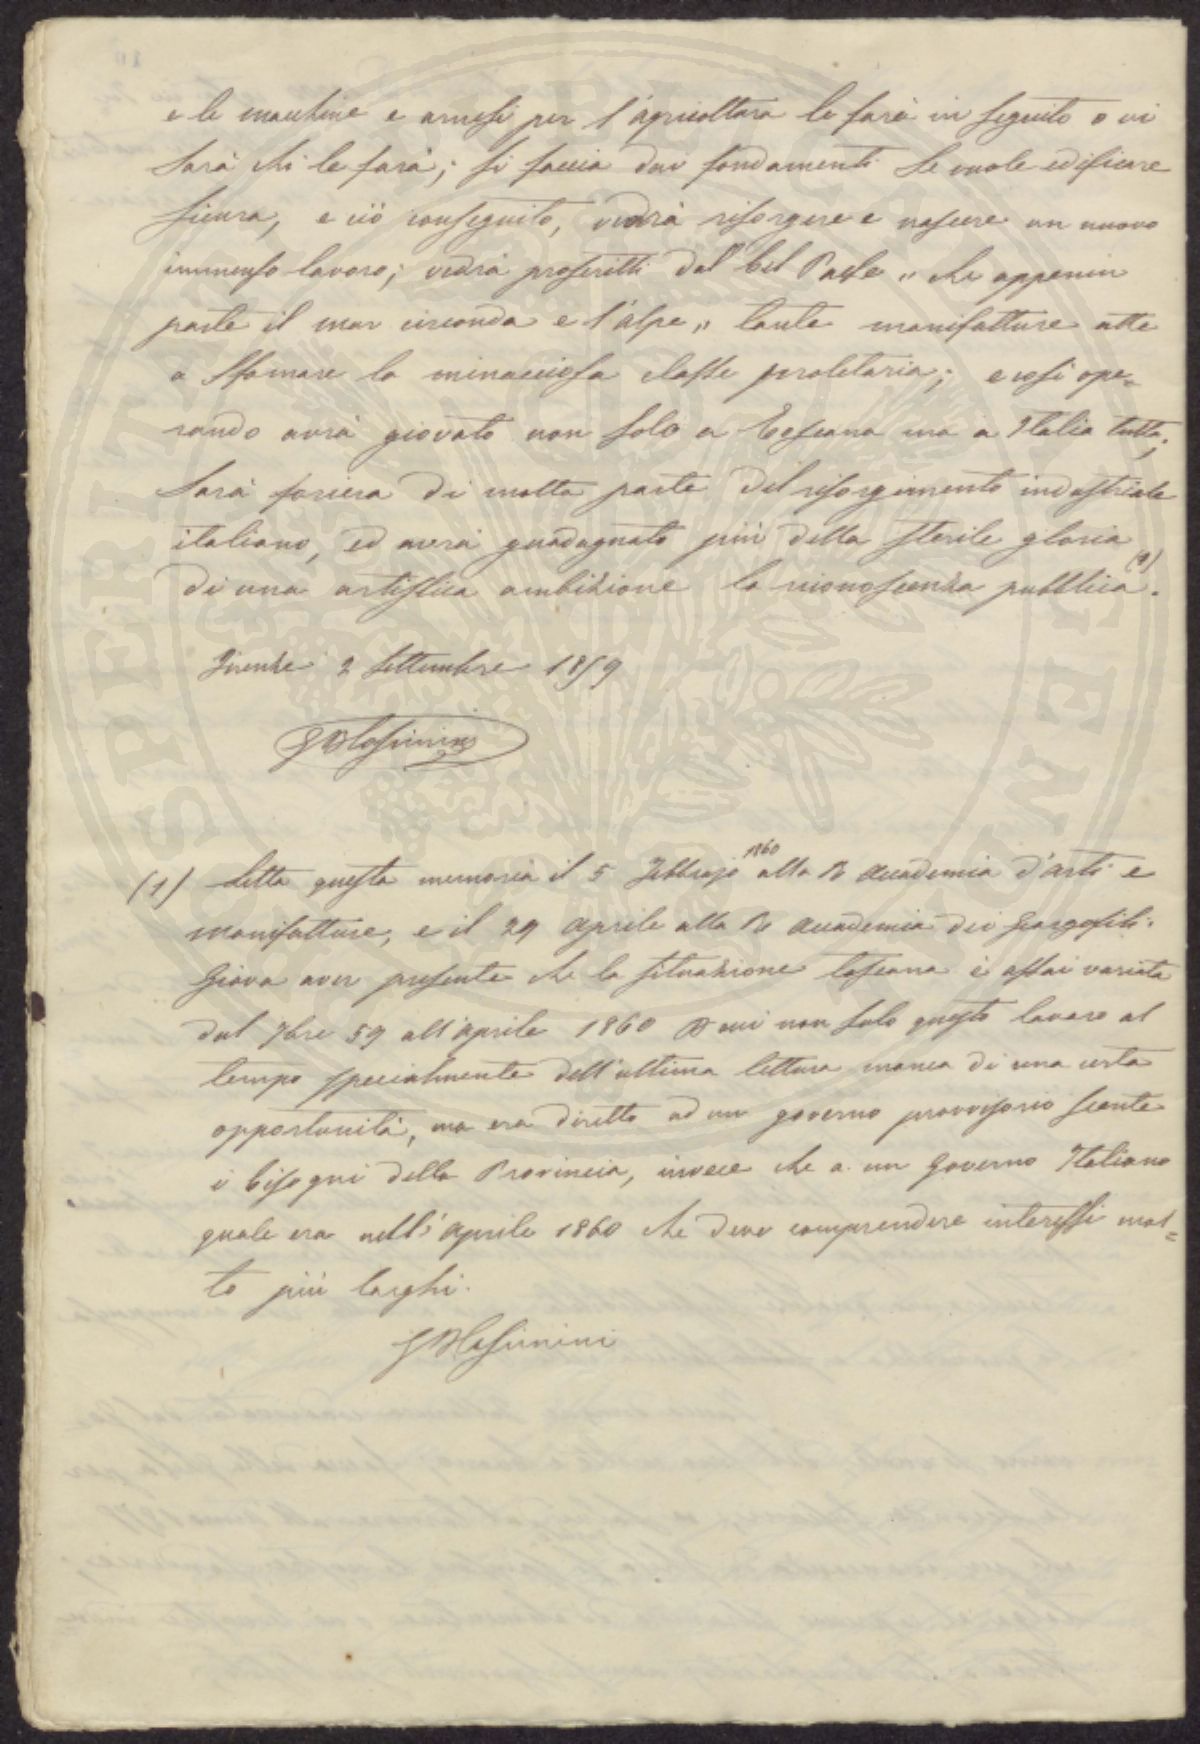 e le macchine e arnesi per l'agricoltura le farà in seguito o vi
sarà chi le farà; si faccia dai fondamenti se vuole edificare
sicura, e ciò conseguito, vedrà risorgere e nascere un nuovo
immenso lavoro; vedrà proscritti dal bel Paese „ che appenin
parte il mar circonda e l'alpe „ tante manifatture atte
a sfamare la minacciosa classe proletaria; e così ope=
rando avrà giovato non solo a Toscana ma a Italia tutta;
Sarà foriera di molta parte del risorgimento industriale
italiano, ed averà guadagnato più della sterile gloria
di una artistica ambizione la riconoscenza pubblica (1).
Firenze 2 Settembre 1859
(1) Letta questa memoria il 5 Febbrajo 1860 alla R Accademia d'arti e
manifatture, e il 29 Aprile alla R Accademia dei Georgofili.
Giova aver presente che la situazione toscana è assai variata
dal 7bre 59 all'Aprile 1860 non solo questo lavoro al
tempo specialmente dell'ultima lettura manca di una certa
opportunità, ma era diretto ad un governo provvisorio
i bisogni della Provincia, invece che a un Governo Italiano
quale era nell'Aprile 1860 che deve comprendere interessi mol=
to più larghi.